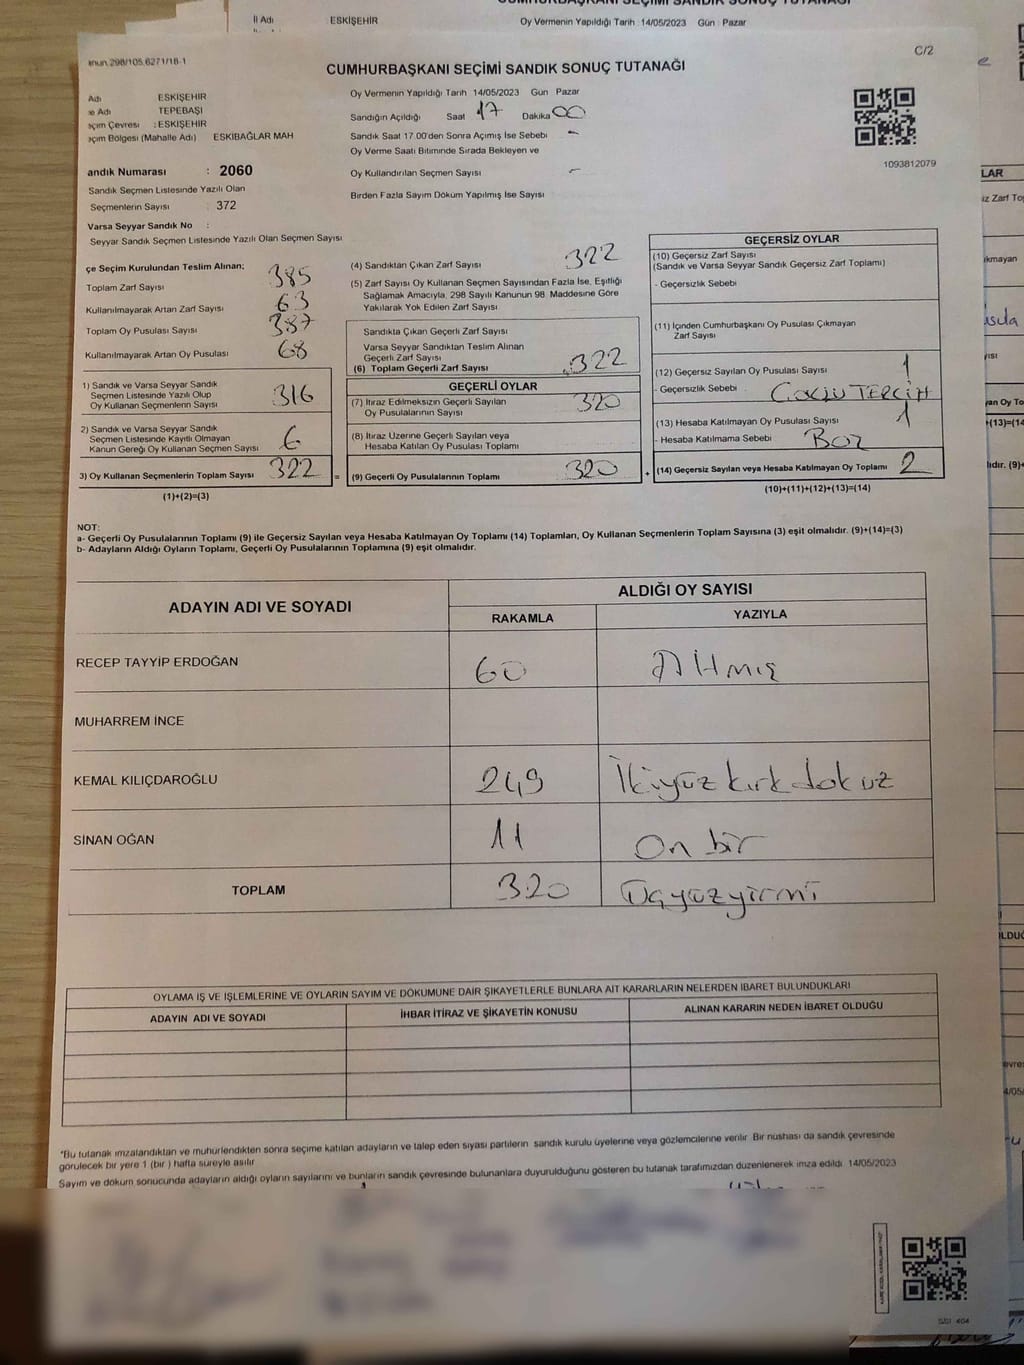 İl Adı ESKİŞEHİR Oy Vermenin Yapıldığı Tarih 14/05/2023 Gün Pazar
298/105,6271/18-1
C/2
CUMHURBAŞKANI SEÇİMİ SANDIK SONUÇ TUTANAĞI
Adı ESKİŞEHİR
Adı TEPEBAŞI
Çevresi : ESKİŞEHİR
Bölgesi (Mahalle Adı) ESKİBAĞLAR MAH
andık Numarası : 2060
Sandık Seçmen Listesinde Yazılı Olan
Seçmenlerin Sayısı : 372
Varsa Seyyar Sandık No :
Seyyar Sandık Seçmen Listesinde Yazılı Olan Seçmen Sayısı
Oy Vermenin Yapıldığı Tarih 14/05/2023 Gün Pazar
Sandığın Açıldığı Saat 17 Dakika 00
Sandık Saat 17.00'den Sonra Açımış İse Sebebi -
Oy Verme Saati Bitiminde Sırada Bekleyen ve
Oy Kullandırılan Seçmen Sayısı -
Birden Fazla Sayım Döküm Yapılmış İse Sayısı
1093812079
çe Seçim Kurulundan Teslim Alınan;
Toplam Zarf Sayısı 385
Kullanılmayarak Artan Zarf Sayısı 63
Toplam Oy Pusulası Sayısı 387
Kullanılmayarak Artan Oy Pusulası 68
1) Sandık ve Varsa Seyyar Sandık
Seçmen Listesinde Yazılı Olup
Oy Kullanan Seçmenlerin Sayısı 316
2) Sandık ve Varsa Seyyar Sandık
Seçmen Listesinde Kayıtlı Olmayan
Kanun Gereği Oy Kullanan Seçmen Sayısı 6
3) Oy Kullanan Seçmenlerin Toplam Sayısı 322 =
(1)+(2)=(3)
(4) Sandıktan Çıkan Zarf Sayısı 322
(5) Zarf Sayısı Oy Kullanan Seçmen Sayısından Fazla İse, Eşitliği
Sağlamak Amacıyla, 298 Sayılı Kanunun 98. Maddesine Göre
Yakılarak Yok Edilen Zarf Sayısı
Sandıkta Çıkan Geçerli Zarf Sayısı
Varsa Seyyar Sandıktan Teslim Alınan
Geçerli Zarf Sayısı
(6) Toplam Geçerli Zarf Sayısı 322
GEÇERLİ OYLAR
(7) İtiraz Edilmeksizin Geçerli Sayılan
Oy Pusulalarının Sayısı 320
(8) İtiraz Üzerine Geçerli Sayılan veya
Hesaba Katılan Oy Pusulası Toplamı
(9) Geçerli Oy Pusulalarının Toplamı 320 +
GEÇERSİZ OYLAR
(10) Geçersiz Zarf Sayısı
(Sandık ve Varsa Seyyar Sandık Geçersiz Zarf Toplamı)
- Geçersizlik Sebebi
(11) İçinden Cumhurbaşkanı Oy Pusulası Çıkmayan
Zarf Sayısı
(12) Geçersiz Sayılan Oy Pusulası Sayısı 1
- Geçersizlik Sebebi ÇOKLU TERCİH
(13) Hesaba Katılmayan Oy Pusulası Sayısı 1
- Hesaba Katılmama Sebebi Boz
(14) Geçersiz Sayılan veya Hesaba Katılmayan Oy Toplamı 2
(10)+(11)+(12)+(13)=(14)
NOT:
a- Geçerli Oy Pusulalarının Toplamı (9) ile Geçersiz Sayılan veya Hesaba Katılmayan Oy Toplamı (14) Toplamları, Oy Kullanan Seçmenlerin Toplam Sayısına (3) eşit olmalıdır. (9)+(14)=(3)
b- Adayların Aldığı Oyların Toplamı, Geçerli Oy Pusulalarının Toplamına (9) eşit olmalıdır.
ADAYIN ADI VE SOYADI ALDIĞI OY SAYISI
RAKAMLA YAZIYLA
RECEP TAYYİP ERDOĞAN 60 Altmış
MUHARREM İNCE
KEMAL KILIÇDAROĞLU 249 İkiyüzkırkdokuz
SİNAN OĞAN 11 On bir
TOPLAM 320 Üçyüzyirmi
OYLAMA İŞ VE İŞLEMLERİNE VE OYLARIN SAYIM VE DÖKÜMÜNE DAİR ŞİKAYETLERLE BUNLARA AİT KARARLARIN NELERDEN İBARET BULUNDUKLARI
ADAYIN ADI VE SOYADI İHBAR İTİRAZ VE ŞİKAYETİN KONUSU ALINAN KARARIN NEDEN İBARET OLDUĞU
*Bu tutanak imzalandıktan ve mühürlendikten sonra seçime katılan adayların ve talep eden siyasi partilerin sandık kurulu üyelerine veya gözlemcilerine verilir. Bir nüshası da sandık çevresinde
görülecek bir yere 1 (bir) hafta süreyle asılır
Sayım ve döküm sonucunda adayların aldığı oyların sayılarını ve bunların sandık çevresinde bulunanlara duyurulduğunu gösteren bu tutanak tarafımızdan düzenlenerek imza edildi. 14/05/2023